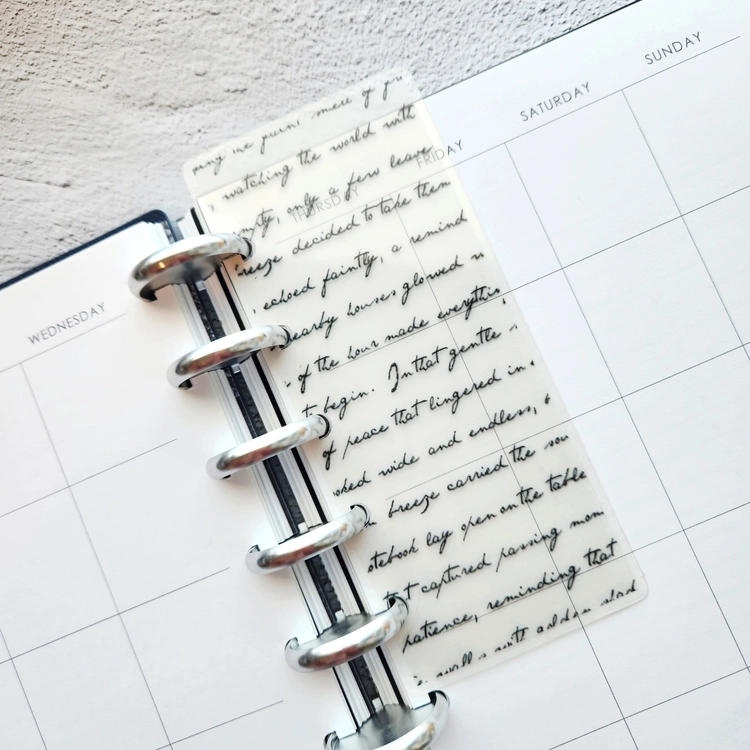 WEDNESDAY
THURSDAY
FRIDAY
SATURDAY
SUNDAY
smell of
watching the world with
only a few leave
breeze decided to take them
echoed faintly, a remind
nearby houses glowed
of the hour made everythin
begin. In that gentle
of peace that lingered in
oked wide and endless,
breeze carried the sou
otebook lay open on the table
t captured passing mom
patience, reminding that